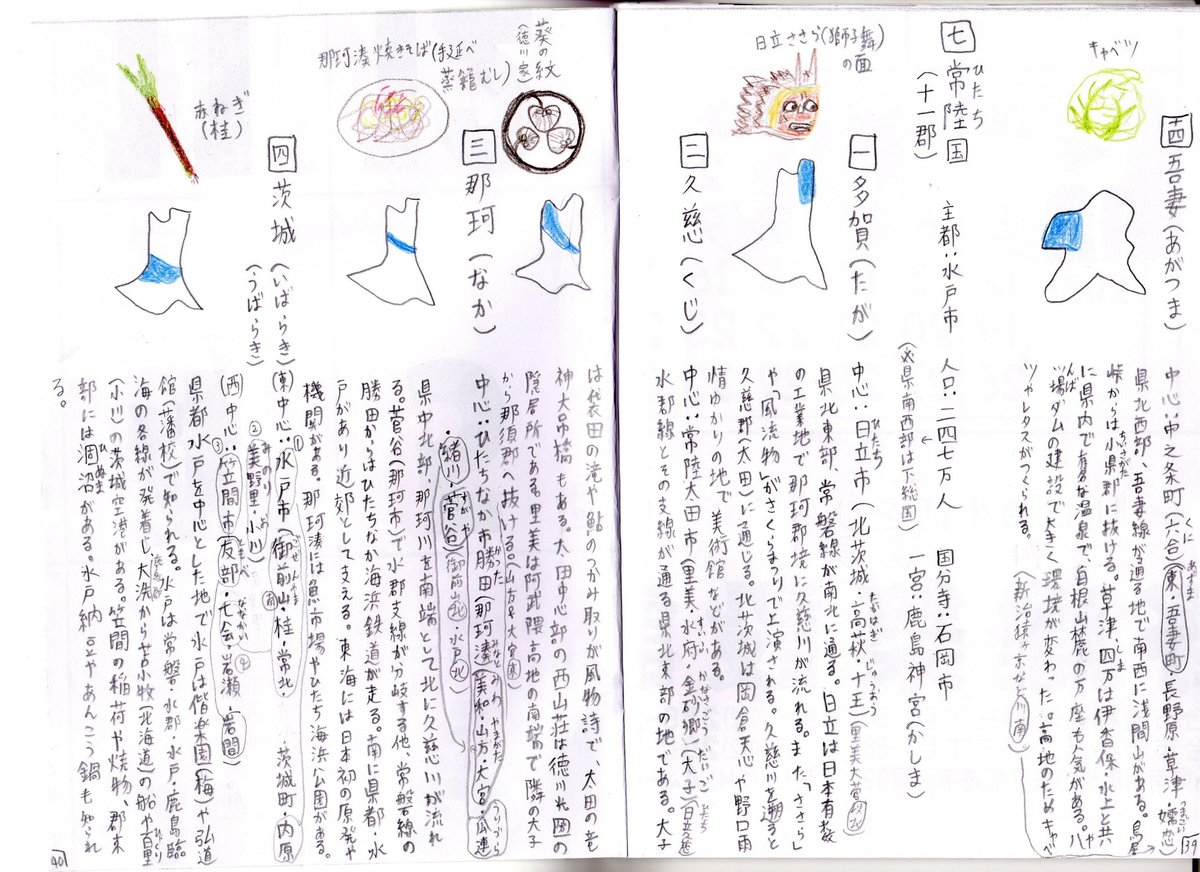 キャベツ
十四 吾妻(あがつま)
中心:中之条町(六合)(東・吾妻町・長野原・草津・嬬恋)
県北西部、吾妻線が通る地で南西に浅間山がある。鳥居
峠からは小県郡に抜ける。草津、四万は伊香保・水上と共
に県内で有名な温泉で、白根山麓の万座も人気がある。八
ッ場ダムの建設で大きく環境が変わった。高地のためキャベ
ツやレタスがつくられる。
(新治猿ヶ京など川南)
39
七 常陸国
ひたち
(十一郡)
主都:水戸市 人口:二四七万人 国分寺:石岡市
一宮:鹿島神宮(かしま)
(※県南西部は下総国)
日立ささら(獅子舞
の面)
一 多賀(たが)
中心:日立市(北茨城・高萩・十王)(里美大菅の北)
県北東部、常磐線が南北に通る。日立は日本有数
の工業地で那珂郡境に久慈川が流れる。また、「ささら」
や「風流物」がさくらまつりで上演される。久慈川を遡ると
久慈郡(太田)に通じる。北茨城は岡倉天心や野口雨
情ゆかりの地で、美術館などがある。
二 久慈(くじ)
中心:常陸太田市(里美・水府・金砂郷)(大子)(日立久慈)
水郡線とその支線が通る県北東部の地である。大子
は袋田の滝や鮎のつかみ取りが風物詩で、太田の竜
神大吊橋もある。太田中心部の西山荘は徳川光圀の
隠居所である。里美は阿武隈高地の南端で隣の大子
から那須郡へ抜ける。(山方&大宮東)
葵の紋
(徳川家)
三 那珂(なか)
那珂湊焼きそば(手延べ
蒸籠むし)
中心:ひたちなか市勝田(那珂湊)(美和・山方・大宮・瓜連
・緒川)・菅谷(御前山北・水戸北)
県中北部、那珂川を南端として北に久慈川が流れ
る。菅谷(那珂市)で水郡支線が分岐する他、常磐線の
勝田からはひたちなか海浜鉄道が走る。南に県都・水
戸があり近郊として支える。東海には日本初の原発や
機関がある。那珂湊には魚市場やひたち海浜公園がある。
四 茨城(いばらき)
(うばらき)
赤ねぎ
(桂)
(東)中心:①水戸市(御前山南・桂・常北・茨城町・内原
②美野里・小川)
(西)中心:③笠間市(友部・七会④・岩瀬・岩間)
県都水戸を中心とした地で水戸は偕楽園(梅)や弘道
館(藩校)で知られる。水戸は常磐・水郡・水戸・鹿島臨
海の各線が発着し、大洗から苫小牧(北海道)の船や百里
(小川)の茨城空港がある。笠間の稲荷や焼物、郡東
部には涸沼がある。水戸納豆やあんこう鍋も知られ
る。
40